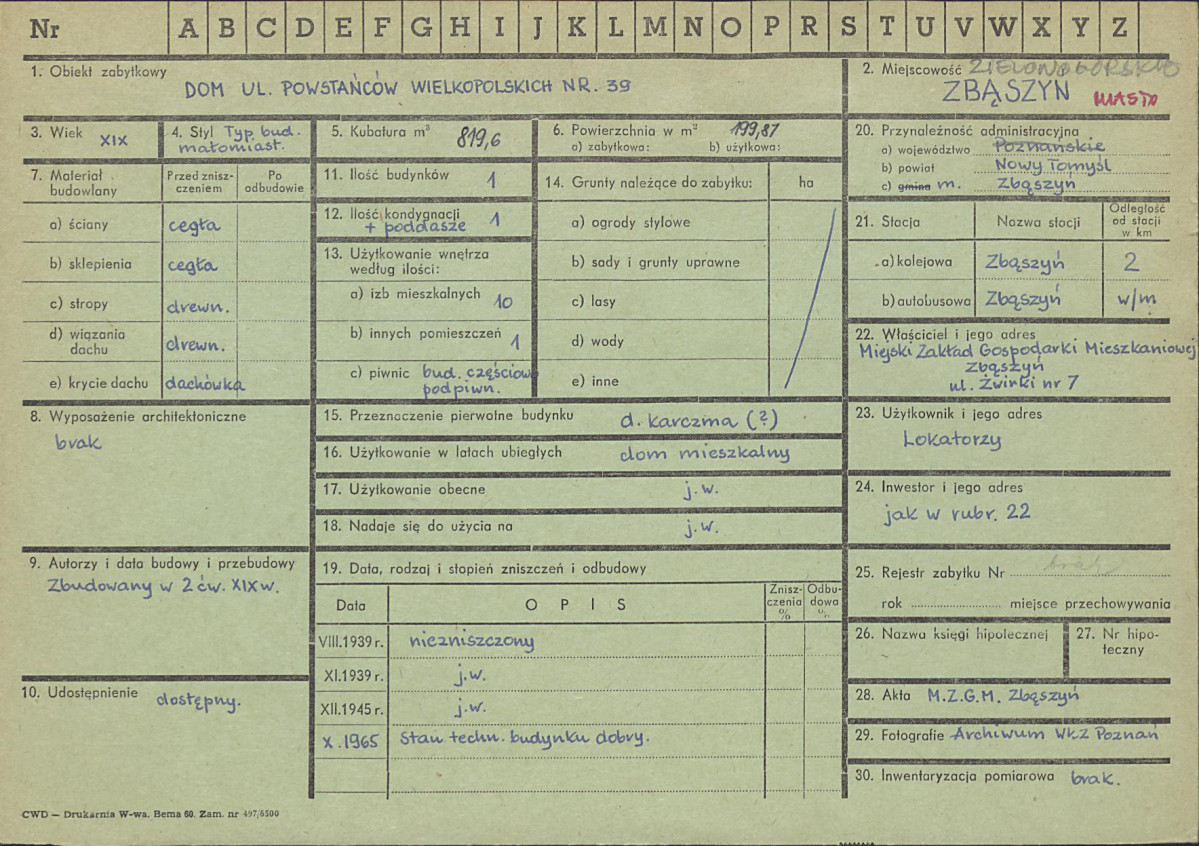 Nr A B C D E F G H I J K L M N O P R S T U V W X Y Z
1. Obiekt zabytkowy
DOM UL. POWSTAŃCÓW WIELKOPOLSKICH NR. 39
2. Miejscowość ZIELONOGÓRSKIE
ZBĄSZYŃ MIASTO
3. Wiek XIX
4. Styl Typ. bud.
małomiast.
5. Kubatura m³ 819,6
6. Powierzchnia w m² 199,87
a) zabytkowa: b) użytkowa:
7. Materiał budowlany
Przed zniszczeniem
Po odbudowie
a) ściany cegła
b) sklepienia cegła
c) stropy drewn.
d) wiązania dachu drewn.
e) krycie dachu dachówka
8. Wyposażenie architektoniczne
brak
9. Autorzy i data budowy i przebudowy
Zbudowany w 2 ćw. XIX w.
10. Udostępnienie dostępny.
11. Ilość budynków 1
12. Ilość kondygnacji 1
+ poddasze
13. Użytkowanie wnętrza
według ilości:
a) izb mieszkalnych 10
b) innych pomieszczeń 1
c) piwnic bud. częściow.
podpiwn.
14. Grunty należące do zabytku: ha
a) ogrody stylowe
b) sady i grunty uprawne
c) lasy
d) wody
e) inne
15. Przeznaczenie pierwotne budynku d. karczma (?)
16. Użytkowanie w latach ubiegłych dom mieszkalny
17. Użytkowanie obecne j.w.
18. Nadaje się do użycia na j.w.
19. Data, rodzaj i stopień zniszczeń i odbudowy
Data OPIS Zniszczenia % Odbudowa %
VIII.1939 r. niezniszczony
XI.1939 r. j.w.
XII.1945 r. j.w.
X.1965 Stan techn. budynku dobry.
20. Przynależność administracyjna
a) województwo Poznańskie
b) powiat Nowy Tomyśl
c) gmina m. Zbąszyń
21. Stacja Nazwa stacji Odległość od stacji w km
a) kolejowa Zbąszyń 2
b) autobusowa Zbąszyń w/m
22. Właściciel i jego adres
Miejski Zakład Gospodarki Mieszkaniowej
Zbąszyń
ul. Żwirki nr 7
23. Użytkownik i jego adres
Lokatorzy
24. Inwestor i jego adres
jak w rubr. 22
25. Rejestr zabytku Nr brak
rok miejsce przechowywania
26. Nazwa księgi hipotecznej
27. Nr hipoteczny
28. Akta M.Z.G.M. Zbąszyń
29. Fotografie Archiwum WKZ Poznań
30. Inwentaryzacja pomiarowa brak.
CWD — Drukarnia W-wa. Bema 60. Zam. nr 497/6500